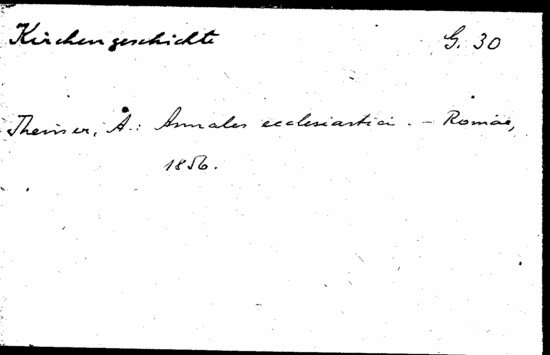 Kirchengeschichte G. 30
Theiner, A.: Annales ecclesiastici. - Romae,
1856.